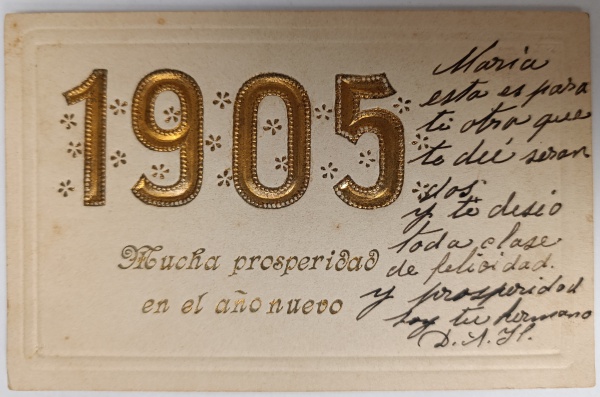 1905
Mucha prosperidad
en el año nuevo
Maria
esta es para
ti otra que
te dié seran
dos
y te desio
toda clase
de felicidad.
y prosperidad
soy tu hermano
D. A. H.